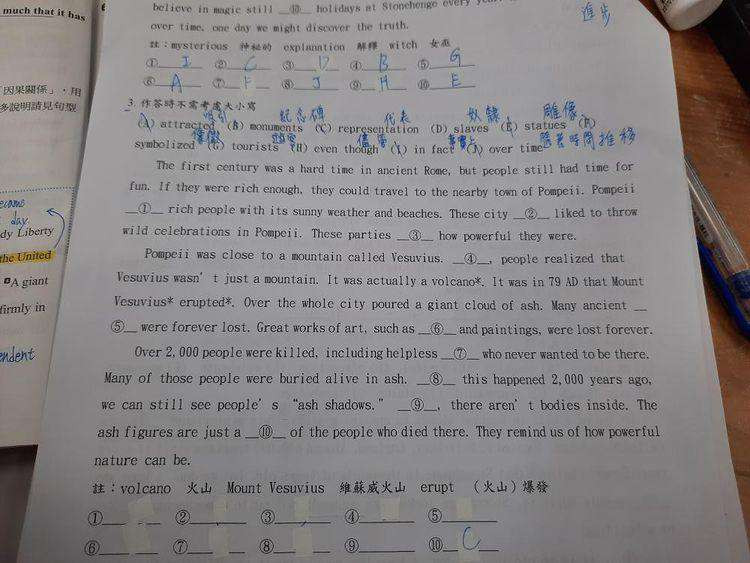 much that it has
「因果關係」，用
多說明請見句型
day
dy Liberty
the United
A giant
firmly in
endent
believe in magic still __⑩__ holidays at Stonehenge every
over time, one day we might discover the truth.
進步
註：mysterious 神祕的 explanation 解釋 witch 女巫
① I ② C ③ D ④ B ⑤ G
⑥ A ⑦ F ⑧ J ⑨ H ⑩ E
3. 作答時不需考慮大小寫
吸引 紀念碑 代表 奴隸 雕像
(A) attracted (B) monuments (C) representation (D) slaves (E) statues (F)
遊客 儘管 事實上 隨著時間推移
symbolized (G) tourists (H) even though (I) in fact (J) over time
The first century was a hard time in ancient Rome, but people still had time for
fun. If they were rich enough, they could travel to the nearby town of Pompeii. Pompeii
__①__ rich people with its sunny weather and beaches. These city __②__ liked to throw
wild celebrations in Pompeii. These parties __③__ how powerful they were.
Pompeii was close to a mountain called Vesuvius. __④__, people realized that
Vesuvius wasn't just a mountain. It was actually a volcano*. It was in 79 AD that Mount
Vesuvius* erupted*. Over the whole city poured a giant cloud of ash. Many ancient __
⑤__ were forever lost. Great works of art, such as __⑥__ and paintings, were lost forever.
Over 2,000 people were killed, including helpless __⑦__ who never wanted to be there.
Many of those people were buried alive in ash. __⑧__ this happened 2,000 years ago,
we can still see people's “ash shadows.” __⑨__, there aren't bodies inside. The
ash figures are just a __⑩__ of the people who died there. They remind us of how powerful
nature can be.
註：volcano 火山 Mount Vesuvius 維蘇威火山 erupt （火山）爆發
① ② ③ ④ ⑤
⑥ ⑦ ⑧ ⑨ ⑩ C